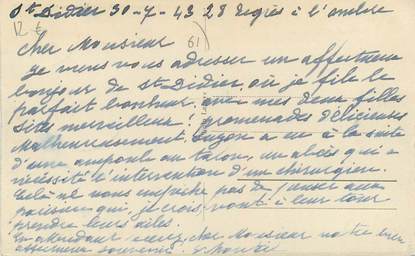 St Didier 30-7-43 28 degrés à l'ombre
12 € 61
Cher Monsieur
Je viens vous adresser un affectueux
bonjour de St Didier, où je file le
parfait bonheur, avec mes deux filles
sites merveilleux! promenades délicieuses
Malheureusement, Suzon a eu à la suite
d'une ampoule au talon, un abcès qui a
nécessité l'intervention d'un chirurgien.
Celà ne nous empêche pas de penser aux
parisiens qui, je crois, vont à leur tour
prendre leurs ailes.
En attendant recevez, cher Monsieur notre bien
affectueux souvenir.